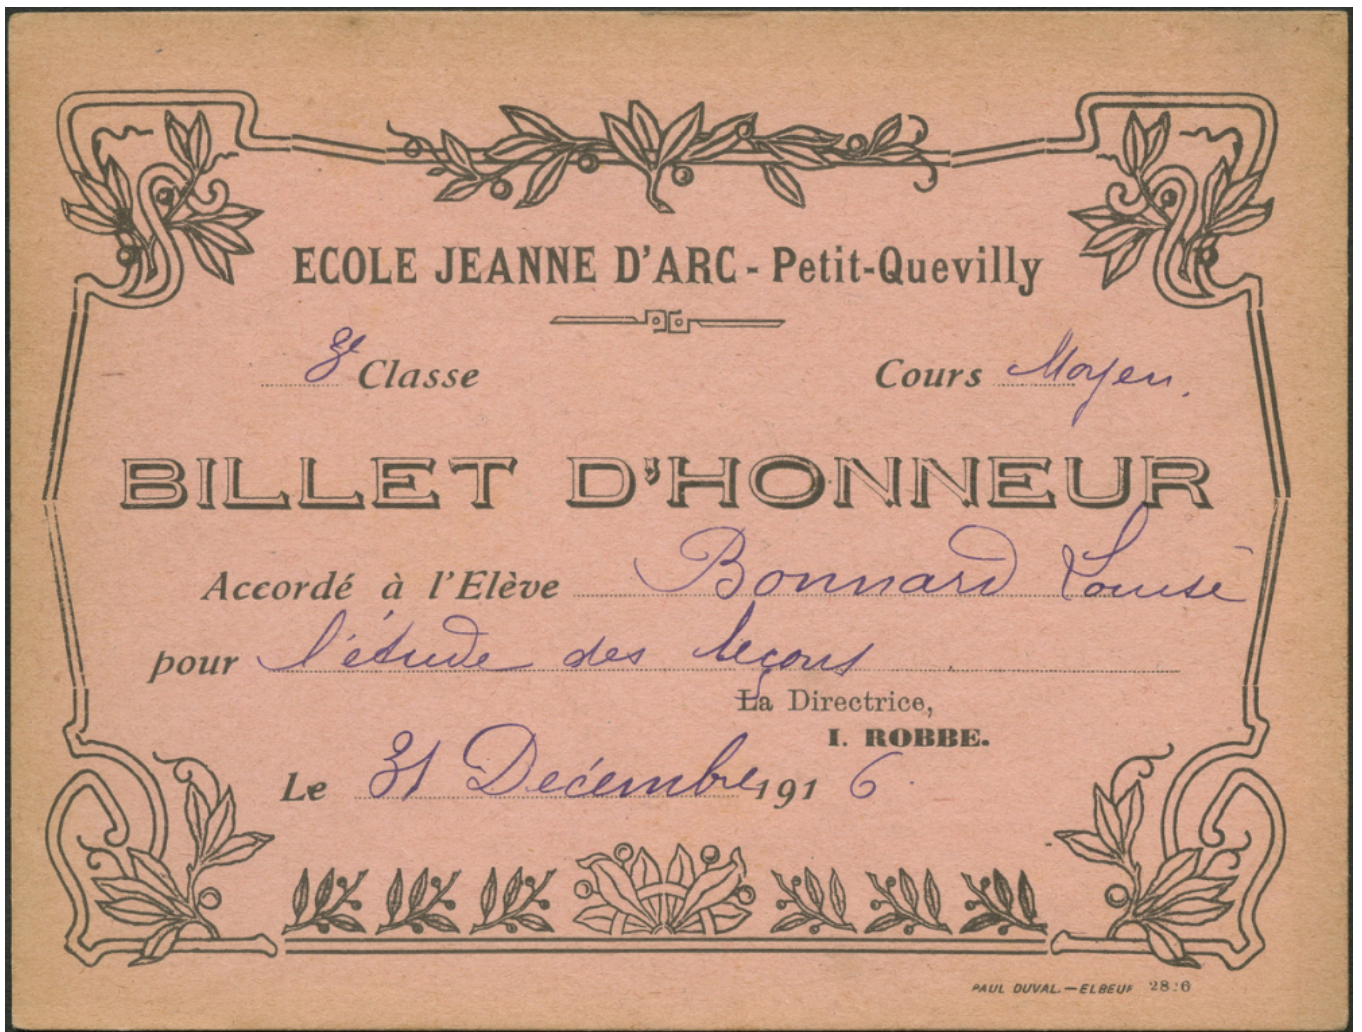 ECOLE JEANNE D'ARC - Petit-Quevilly
Classe Cours Moyen.
BILLET D'HONNEUR
Accordé à l'Elève Bonnard Louise
pour l'étude des leçons
La Directrice,
I. ROBBE.
Le 31 Décembre 1916.
PAUL DUVAL. — ELBEUF